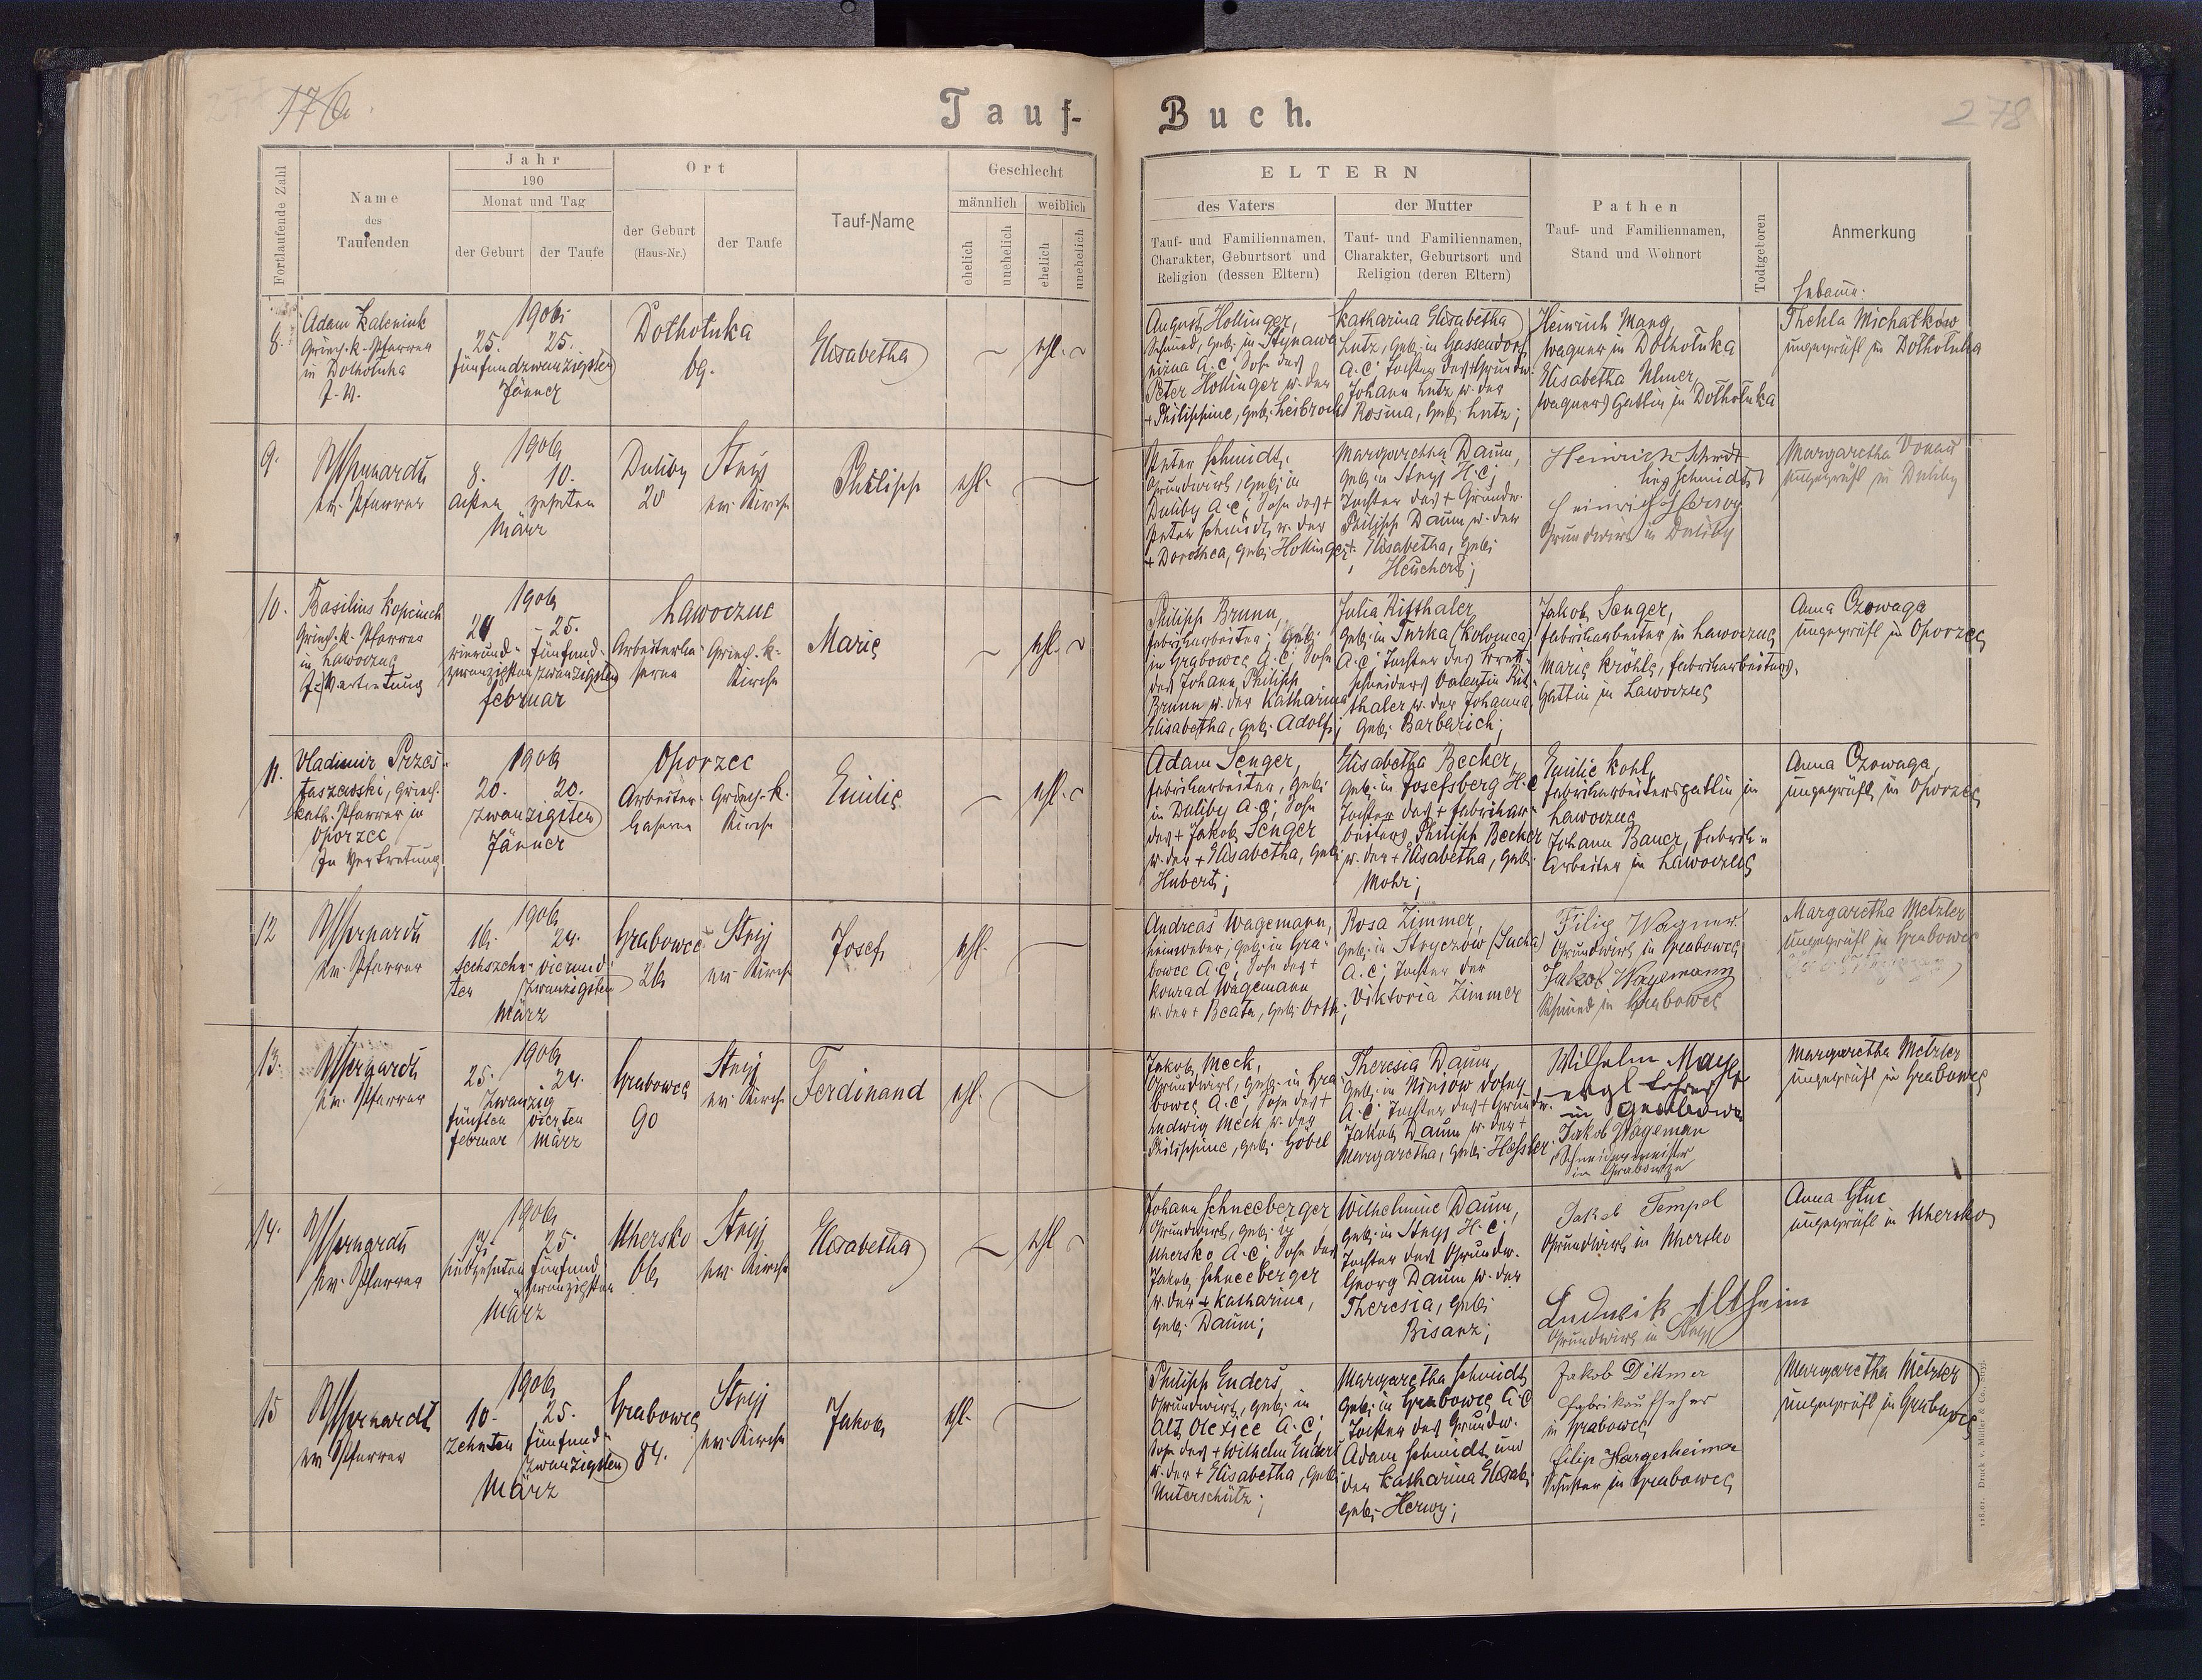 176
Tauf-
Buch.
278
Fortlaufende Zahl
Name
des
Taufenden
Jahr
190
Monat und Tag
der Geburt
der Taufe
Ort
der Geburt
(Haus-Nr.)
der Taufe
Tauf-Name
Geschlecht
männlich
weiblich
ehelich
unehelich
ehelich
unehelich
ELTERN
des Vaters
Tauf- und Familiennamen,
Charakter, Geburtsort und
Religion (dessen Eltern)
der Mutter
Tauf- und Familiennamen,
Charakter, Geburtsort und
Religion (deren Eltern)
Pathen
Tauf- und Familiennamen,
Stand und Wohnort
Todtgeboren
Anmerkung
Hebamme:
8.
Adam Kaleniuk
Griech.-k. Pfarrer
in Dolhołuka
I. V.
1906
25. 25.
fünfundzwanzigsten
Jänner
Dolhołuka
69.
Elisabetha
ehl.
August Hollinger,
Schmied, geb. in Stynawa
nizna A.C; Sohn des
Peter Hollinger u. der
+ Philippine, geb. Leibrock
Katharina Elisabetha
Lutz, geb. in Gassendorf
A.C; Tochter des Grundw.
Johann Lutz u. der
Rosina, geb. Lutz;
Heinrich Mang,
Wagner in Dolhołuka
Elisabetha Ulmer,
Wagners Gattin in Dolhołuka
Thekla Michatków
ungeprüft in Dolhołuka
9.
ev. Pfarrer
1906
8. 10.
achten zehnten
März
Duliby
20
Stryj
ev. Kirche
Philipp
ehl.
Peter Schmidt,
Grundwirt, geb. in
Duliby A.C; Sohn des +
Peter Schmidt u. der
+ Dorothea, geb. Hollinger;
Margaretha Daum,
geb. in Stryj H.C;
Tochter des + Grundw.
Philipp Daum u. der
+ Elisabetha, geb.
Heuchert;
Heinrich Schmidt
Heinrich Herwy
Grundwirt in Duliby
Margaretha Donau
ungeprüft in Duliby
10.
Basilius Kopciuch
Griech.-k. Pfarrer
in Lawoczne
In Vertretung
1906
24 - 25.
vierund- fünfund-
zwanzigsten zwanzigsten
Februar
Lawoczne
Arbeiterka-
serne
Griech.-k.
Kirche
Marie
ehl.
Philipp Brunn,
Fabriksarbeiter, geb.
in Grabowce A.C; Sohn
des Johann Philipp
Brunn u. der Katharina
Elisabetha, geb. Adolf;
Julia Kitthaler,
geb. in Turka (Kolomea)
A.C; Tochter des Brett-
schneiders Valentin Kit-
thaler u. der Johanna,
geb. Barbarich;
Jakob Senger,
Fabriksarbeiter in Lawoczne
Marie Kröhle, Fabriksarbeiters-
Gattin in Lawoczne
Anna Czowaga
ungeprüft in Oporzec
11.
Vladimir Przes-
taszewski, Griech.
kath. Pfarrer in
Oporzec
In Vertretung
1906
20. 20.
zwanzigsten
Jänner
Oporzec
Arbeiter-
kaserne
Griech.-k.
Kirche
Emilie
ehl.
Adam Senger,
Fabriksarbeiter, geb.
in Duliby A.C; Sohn
des + Jakob Senger
u. der + Elisabetha, geb.
Hubert;
Elisabetha Becker,
geb. in Josefsberg H.C
Tochter des + Fabriksar-
beiters Philipp Becker
u. der + Elisabetha, geb.
Mohr;
Emilie Kohl,
Fabriksarbeitersgattin in
Lawoczne
Johann Bauer, Fabriks-
arbeiter in Lawoczne
Anna Czowaga,
ungeprüft in Oporzec
12
ev. Pfarrer
1906
16. 24.
sechszehn- vierund-
ten zwanzigsten
März
Grabowce
26
Stryj
ev. Kirche
Josef
ehl.
Andreas Wagemann,
geb. in Gra-
bowce A.C; Sohn des +
Konrad Wagemann
u. der + Beata, geb. Orth;
Rosa Zimmer,
geb. in Stryczów (Sucha)
A.C; Tochter der
Viktoria Zimmer
Filip Wagner
Grundwirt in Grabowce
Jakob Wagemann
Schmied in Grabowce
Margaretha Metzler
ungeprüft in Grabowce
13.
ev. Pfarrer
1906
25. 24.
zwanzig
fünften vierten
Februar März
Grabowce
90
Stryj
ev. Kirche
Ferdinand
ehl.
Jakob Meck,
Grundwirt, geb. in Gra-
bowce A.C; Sohn des +
Ludwig Meck u. der
Philippine, geb. Göbel
Theresia Daum,
geb. in Niniow dolny
A.C; Tochter des + Grundw.
Jakob Daum u. der +
Margaretha, geb. Hessler
Wilhelm Mayer
evgl. Lehrer
Jakob Wageman
in Grabowce
Margaretha Metzler
ungeprüft in Grabowce
14.
ev. Pfarrer
1906
17. 25.
siebzehnten fünfund-
zwanzigsten
März
Uhersko
66
Stryj
ev. Kirche
Elisabetha
ehl
Johann Schneeberger
Grundwirt, geb. in
Uhersko A.C; Sohn des
Jakob Schneeberger
u. der + Katharina,
geb. Daum;
Wilhelmine Daum,
geb. in Stryj H.C;
Tochter des Grundw.
Georg Daum u. der
Theresia, geb.
Bisanz;
Jakob Tempel
Grundwirt in Uhersko
Ludwik Altheim
Grundwirt in Stryj
Anna Gluc
ungeprüft in Uhersko
15
ev. Pfarrer
1906
10. 25.
zehnten fünfund-
zwanzigsten
März
Grabowce
84.
Stryj
ev. Kirche
Jakob
ehl.
Philipp Enders,
Grundwirt, geb. in
Alt Olexice A.C;
Sohn des + Wilhelm Enders
u. der + Elisabetha, geb.
Unterschütz;
Margaretha Schmidt,
geb. in Grabowce A.C
Tochter des Grundw.
Adam Schmidt und
der Katharina Elisab.
geb. Herwy;
Jakob Dittmer
Fabrikaufseher
in Grabowce
Filip Hargesheimer
Schuster in Grabowce
Margaretha Metzler
ungeprüft in Grabowce
118.01. Druck v. Müller & Co., Stryj.